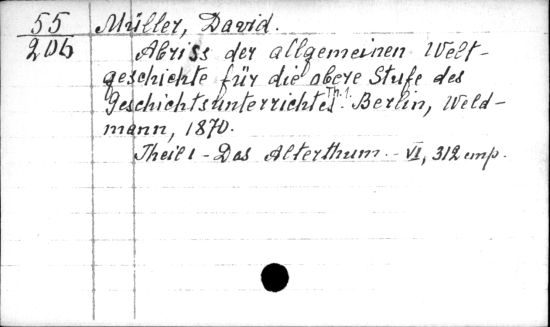 55 Müller, David.
206 Abriss der allgemeinen Welt-
geschichte für die obere Stufe des
Geschichtsunterrichtes. Th. 1. Berlin, Weld-
mann, 1870.
Theil 1 - Das Alterthum. - VI, 312 стр.